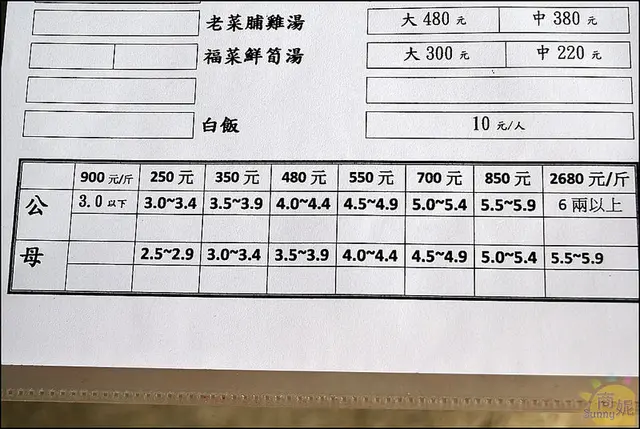 老菜脯雞湯 大 480 元 中 380 元
福菜鮮筍湯 大 300 元 中 220 元
白飯 10 元/人
900 元/斤 250 元 350 元 480 元 550 元 700 元 850 元 2680 元/斤
公 3.0 以下 3.0~3.4 3.5~3.9 4.0~4.4 4.5~4.9 5.0~5.4 5.5~5.9 6 兩以上
母 2.5~2.9 3.0~3.4 3.5~3.9 4.0~4.4 4.5~4.9 5.0~5.4 5.5~5.9
商妮
Sunny